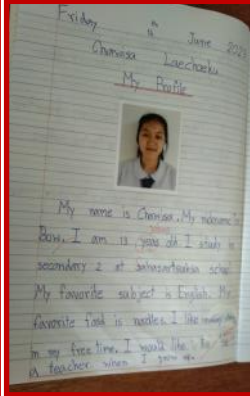 Friday
th
June
My Profile
My name is Chanisa. My nickname is
Bow. I am 13 years old. I study in
secondary 2 at school.
My favourite subject is English. My
favorite food is noodles. I like
in my free time. I would like to
a teacher when I grow up.